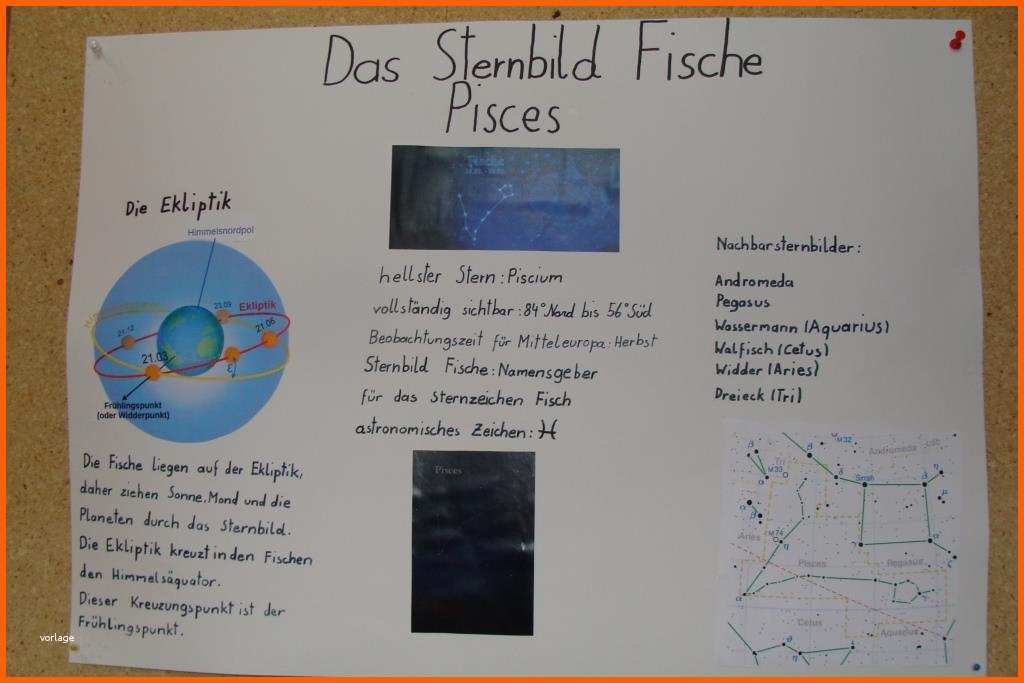 Das Sternbild Fische
Pisces
Die Ekliptik
Himmelsnordpol
21.09
Ekliptik
21.12
21.06
21.03
Frühlingspunkt
(oder Widderpunkt)
Die Fische liegen auf der Ekliptik,
daher ziehen Sonne, Mond und die
Planeten durch das Sternbild.
Die Ekliptik kreuzt in den Fischen
den Himmelsäquator.
Dieser Kreuzungspunkt ist der
Frühlingspunkt.
Fische
hellster Stern: Piscium
vollständig sichtbar: 84° Nord bis 56° Süd
Beobachtungszeit für Mitteleuropa: Herbst
Sternbild Fische: Namensgeber
für das Sternzeichen Fisch
astronomisches Zeichen: ♓
Pisces
Nachbarsternbilder:
Andromeda
Pegasus
Wassermann (Aquarius)
Walfisch (Cetus)
Widder (Aries)
Dreieck (Tri)
M32
Andromeda
Tri
M33
α
β
δ
Sirrah
β
η
μ
α
β
γ
M74
Aries
η
α
Pisces
Pegasus
α
γ
Cetus
Aquarius
θ
η
ι
vorlage